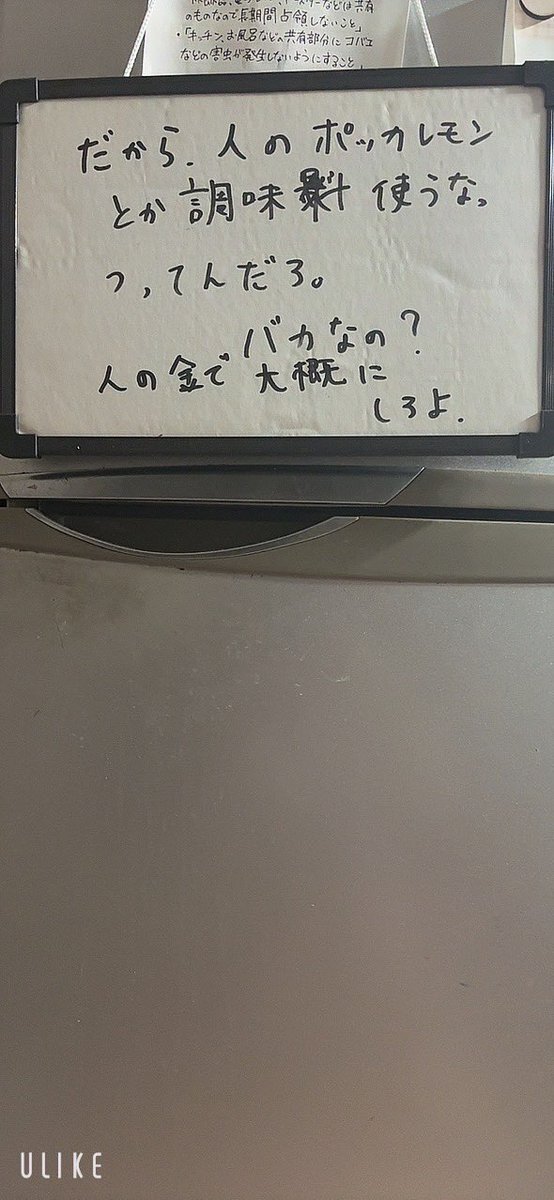 などは共有
のものなので長期間占領しないこと」
・「キッチン、お風呂などの共有部分にコバエ
などの害虫が発生しないようにすること」
だから、人のポッカレモン
とか調味料使うな
っ、てんだろ。
バカなの？
人の金で大概に
しろよ.
ULIKE